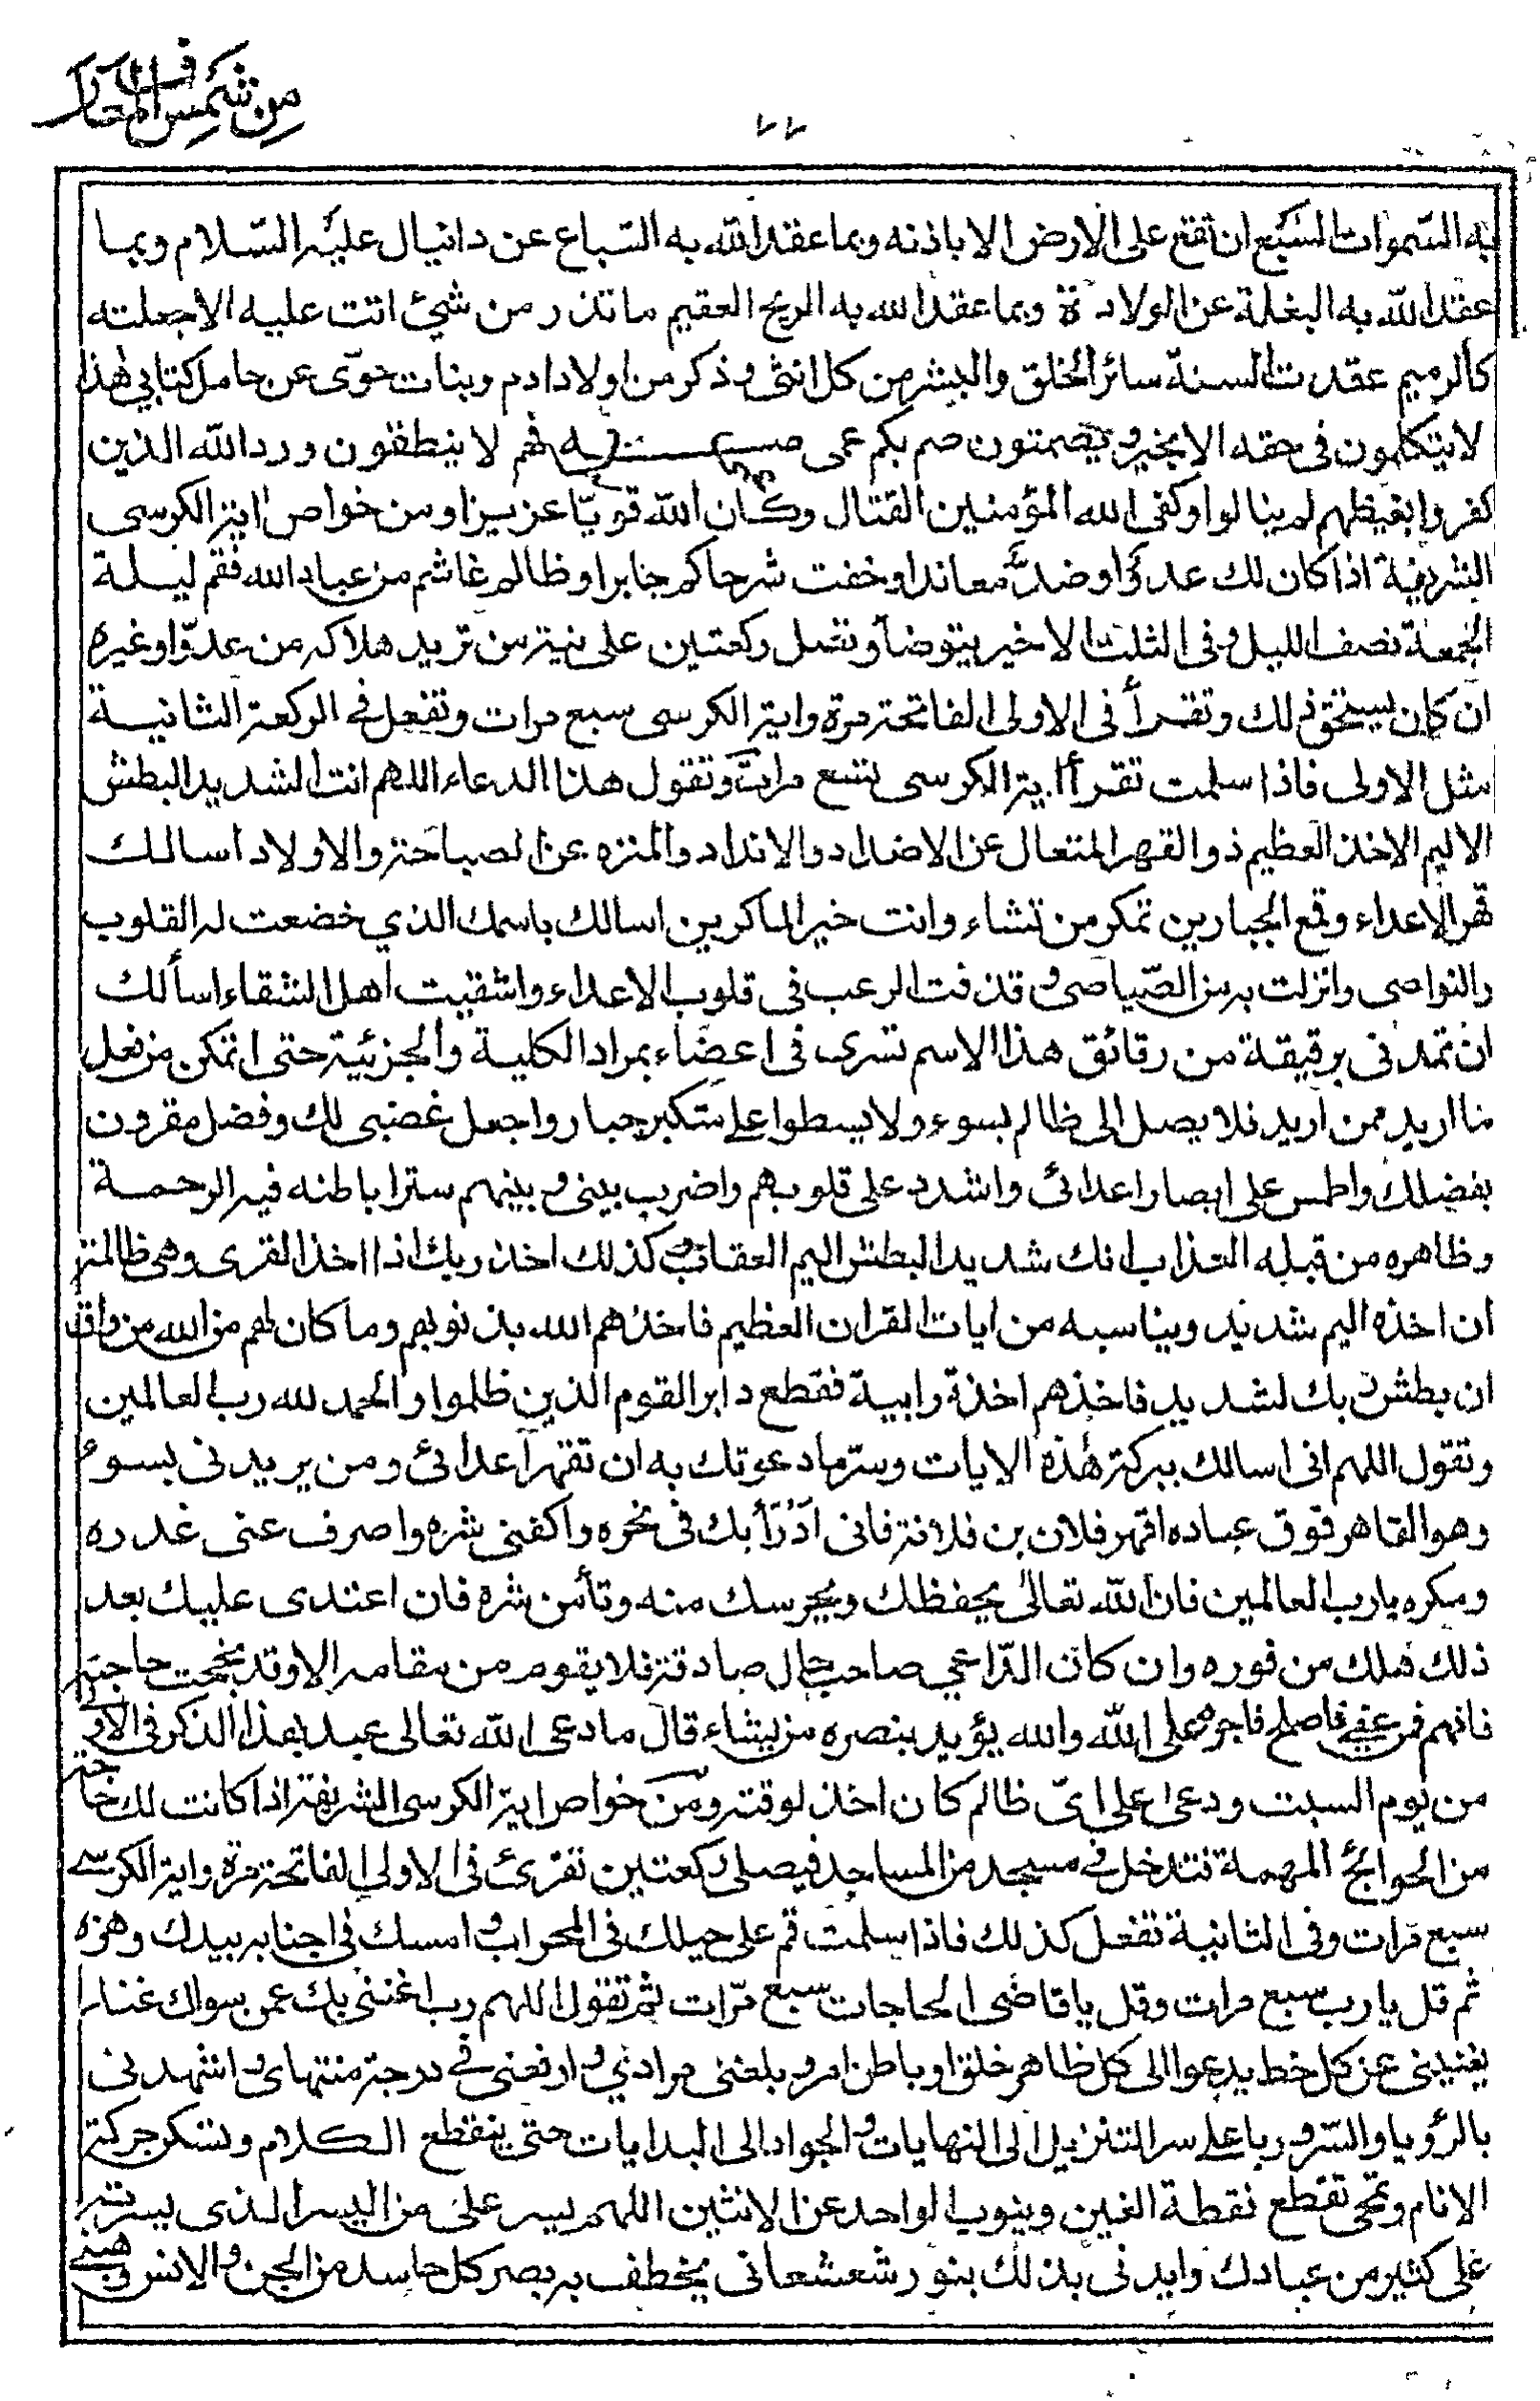 من شمس المعارف
٧٧
به السموات السبع ان تقع على الارض الا باذنه وبما عقد الله به السباع عن دانيال عليه السلام وبما
عقد الله به البغلة عن الولادة وبما عقد الله به الريح العقيم ما تذر من شئ اتت عليه الا جعلته
كالرميم عقدت السنة سائر الخلق والبشر من كل انثى وذكر من اولاد ادم وبنات حوّى عن حامل كتابي هذا
لا يتكلمون فى حقه الا بخير ويصمتون صم بكم عمى فهم لا ينطقون ورد الله الذين
كفروا بغيظهم لم ينالوا وكفى الله المؤمنين القتال وكان الله قويّا عزيزا ومن خواص اية الكرسى
الشريفة اذا كان لك عدوّ او ضدّ معاندا وخفت شر حاكم جابر او ظالم غاشم من عباد الله فقم ليلة
الجمعة نصف الليل وفى الثلث الاخير يتوضأ وتصل ركعتين على نية من تريد هلاكه من عدوّ او غيره
ان كان يستحق ذلك وتقرأ فى الاولى الفاتحة مرة واية الكرسى سبع مرات وتفعل فى الركعة الثانية
مثل الاولى فاذا سلمت تقرأ اية الكرسى تسع مرات وتقول هذا الدعاء اللهم انت الشديد البطش
الاليم الاخذ العظيم ذو القهر المتعال عن الاضداد والانداد والمنزه عن الصباحة والاولاد اسالك
قهر الاعداء وقمع الجبارين تمكر من تشاء وانت خير الماكرين اسالك باسمك الذي خضعت له القلوب
والنواصى وانزلت به من الصّياصى وقذفت الرعب فى قلوب الاعداء واشقيت اهل الشقاء اسألك
ان تمدنى برقيقة من رقائق هذا الاسم تسرى فى اعضاء بمراد الكلية والجزئية حتى اتمكن من فعل
ما اريد ممن اريد فلا يصل الى ظالم بسوء ولا يسطوا على متكبر جبار واجعل غضبى لك وفضل مقرون
بفضلك واطمس على ابصار اعدائى واشدد على قلوبهم واضرب بينى وبينهم سترا باطنه فيه الرحمة
وظاهره من قبله العذاب انك شديد البطش اليم العقاب وكذلك اخذ ربك اذا اخذ القرى وهى ظالمة
ان اخذه اليم شديد ويناسبه من ايات القران العظيم فاخذهم الله بذنوبهم وما كان لهم من الله من واق
ان بطش ربك لشديد فاخذهم اخذة رابية فقطع دابر القوم الذين ظلموا والحمد لله رب العالمين
وتقول اللهم انى اسالك ببركة هذه الايات وسرّ ما دعوتك به ان تقهر اعدائى ومن يريدنى بسوء
وهو القاهر فوق عباده اقهر فلان بن فلانة فانى ادْرَأُ بك فى نحره واكفنى شره واصرف عنى غدره
ومكره يا رب العالمين فان الله تعالى يحفظك ويحرسك منه وتأمن شره فان اعتدى عليك بعد
ذلك هلك من فوره وان كان الدّاعى صاحب حال صادقة فلا يقوم من مقامه الا وقد نجحت حاجته
فافهم فمن عفى فاصلح فاجره على الله والله يؤيد بنصره من يشاء قال ما دعى الله تعالى عبد بهذا الذكر فى الاولى
من يوم السبت ودعى على اىّ ظالم كان اخذ لوقته ومن خواص اية الكرسى الشريفة اذا كانت لك حاجة
من الحوائج المهمة تتدخل فى مسجد من المساجد فيصلى ركعتين تقرئ فى الاولى الفاتحة مرة واية الكرسى
سبع مرات وفى الثانية تفعل كذلك فاذا سلمت قم على حيلك فى المحراب وامسك فى اجنابه بيدك وهزه
ثم قل يا رب سبع مرات وقل يا قاضى الحاجات سبع مرّات ثم تقول اللهم رب اغننى بك عمن سواك غنا را
يغنينى عن كل خط يدعوا الى كل ظاهر خلق او باطن امر وبلغنى مرادي وارفعنى فى درجة منتهاى واشهدنى
بالرؤيا والسرور باعلى سر التنزيل الى النهايات والجواد الى البدايات حتى ينقطع الكلام وتسكن حركة
الانام وتمحى تقطع نقطة الغين وينوب الواحد عن الاثنين اللهم يسر على من اليسر الذى يسرته
على كثير من عبادك وايدنى بذلك بنور شعشعانى يخطف به بصر كل حاسد من الجن والانس وهبنى